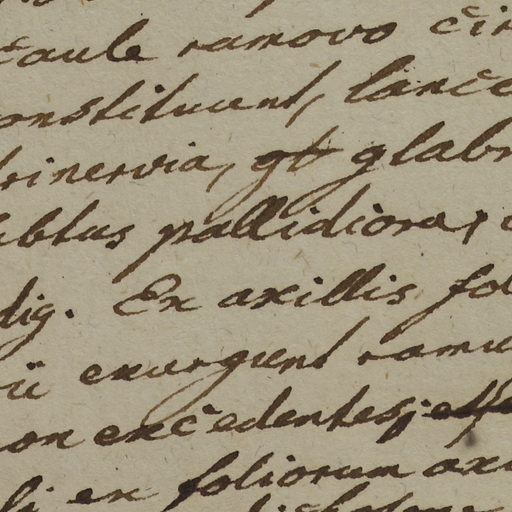 caule ramovo cir
onstituunt, lance
rinervia, gt glabr
ubtus pallidiora,
dig. Ex axillis fol
ii exurgunt ramu
on excedentes;
li ex foliorum axi